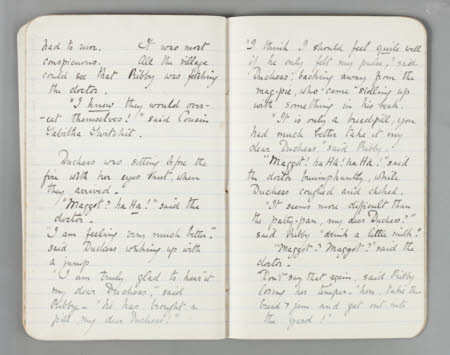 had to run. It was most
conspicuous. All the village
could see that Ribby was fetching
the doctor.
"I knew they would over-
eat themselves!" said Cousin
Tabitha Twitchit.
Duchess was sitting before the
fire with her eyes shut, when
they arrived.
"Maggot? ha Ha!" said the
doctor.
"I am feeling very much better."
said Duchess waking up with
a jump.
"I am truly glad to hear it
my dear Duchess," said
Ribby - "he has brought a
pill, my dear Duchess!"
"I think I should feel quite well
if he only felt my pulse," said
Duchess, backing away from the
magpie, who came sidling up
with something in his beak.
"It is only a breadpill, you
had much better take it my
dear Duchess," said Ribby.
"Maggot! ha Ha! ha Ha!" said
the doctor triumphantly, while
Duchess coughed and choked.
"It seems more difficult than
the patty-pan, my dear Duchess?"
said Ribby "drink a little milk."
"Maggot? Maggot?" said the
doctor.
"Don't say that again, said Ribby
losing her temper - "here, take this
bread & jam and get out into
the yard!"